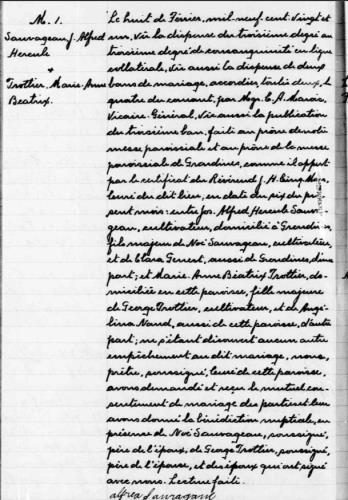 M. 1.
Sauvageau J. Alfred
Hercule
+
Trottier Marie-Anne
Béatrix.
Le huit de Février, mil-neuf-cent-vingt et
un, vu la dispense du troisième degré au
troisième degré de consanguinité en ligne
collatérale, vu aussi la dispense de deux
bans de mariage, accordées, toutes deux, le
quatre du courant, par Mgr. C. A. Marois,
Vicaire-Général, vu aussi la publication
du troisième ban faite au prône de notre
messe paroissiale et au prône de la messe
paroissiale de Grondines, comme il appert
par le certificat du Révérend J. H.
Curé du dit lieu, en date du six du pré-
sent mois: entre Jos. Alfred Hercule Sauva-
geau, cultivateur, domicilié à Grondines,
fils majeur de Noé Sauvageau, cultivateur,
et de Clara Genest, aussi de Grondines, d'une
part; et Marie-Anne Béatrix Trottier, do-
miciliée en cette paroisse, fille majeure
de George Trottier, cultivateur, et de Angé-
lina Naud, aussi de cette paroisse, d'autre
part; ne s'étant découvert aucun autre
empêchement au dit mariage, nous,
prêtre, soussigné, curé de cette paroisse,
avons demandé et reçu le mutuel con-
sentement de mariage des parties et leur
avons donné la bénédiction nuptiale, en
présence de Noé Sauvageau, soussigné,
père de l'époux, de George Trottier, soussigné,
père de l'épouse, et des époux qui ont signé
avec nous. Lecture faite.
Alfred Sauvageau